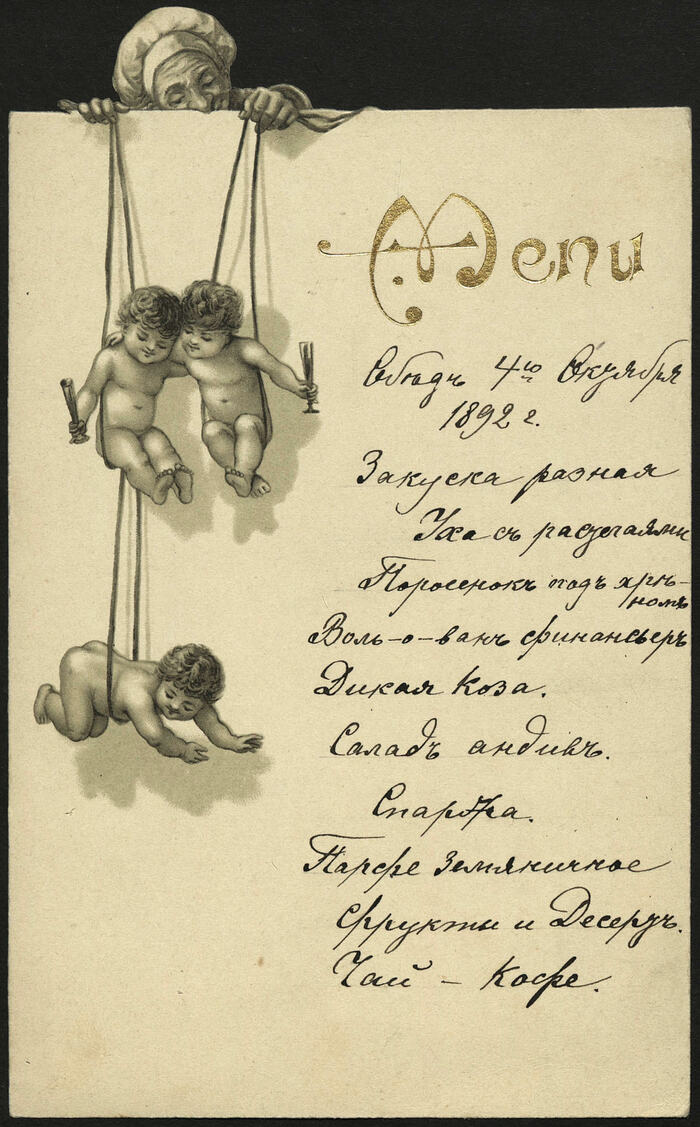 Menu
Обѣдъ 4го Октября
1892 г.
Закуска разная
Уха съ растегаями
Поросенокъ подъ хрѣ-
номъ
Воль-о-ванъ финансьеръ
Дикая Коза.
Саладъ андивъ.
Спаржа.
Парфе Земляничное
Фрукты и Десертъ.
Чай – Кофе.